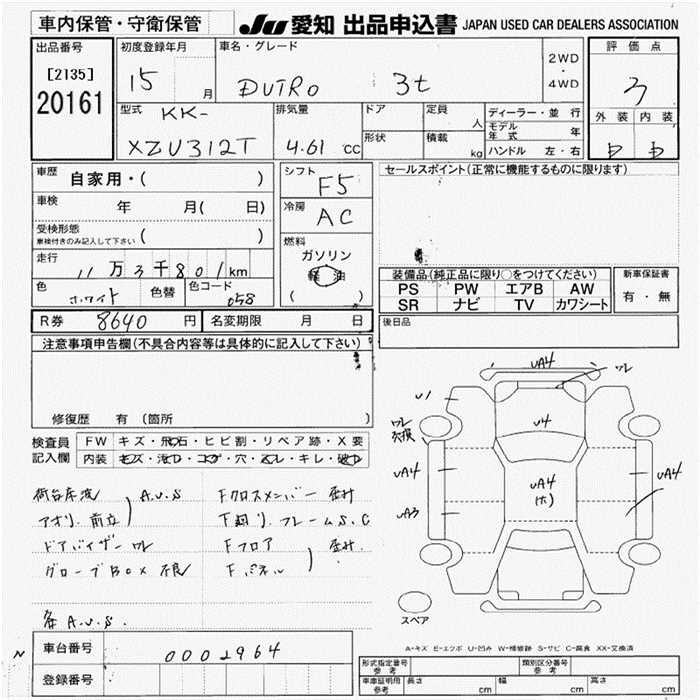 車内保管・守衛保管
JU 愛知 出品申込書 JAPAN USED CAR DEALERS ASSOCIATION
出品番号
[2135]
20161
初度登録年月
15 月
車名・グレード
DUTRO 3t
2WD
・
4WD
評価点
3
外装 内装
型式 KK-
XZU312T
排気量
4.61 CC
ドア
形状
定員 人
積載 kg
ディーラー・並行
モデル年式 年
ハンドル 左・右
車歴 自家用・( )
車検 年 月( 日)
受検形態
車検付きのみ記入して下さい ( )
走行
11万3千801km
色 ホワイト 色替 色コード 058
シフト F5
冷房 AC
燃料
ガソリン
軽油
( )
セールスポイント(正常に機能するものに限ります)
装備品(純正品に限り○をつけてください)
PS PW エアB AW
SR ナビ TV カワシート
新車保証書
有・無
後日品
R券 8640 円 名変期限 月 日
注意事項申告欄(不具合内容等は具体的に記入して下さい)
修復歴 有 (箇所 )
検査員記入欄
FW キズ・飛石・ヒビ割・リペア跡・X要
内装 キズ・汚れ・コゲ・穴・ズレ・キレ・破れ
荷台床板
アオリ、前立
A.U.S
ドアバイザー ワレ
グローブBOX 不良
各A.U.S.
Fクロスメンバー 歪材
下廻り、フレームS.C
Fフロア
Fパネル
UA4
ワレ
U1
ワレ
交換
U4
UA4
UA4
(ホ)
UA4
UA3
スペア
A-キズ E-エクボ U-凹み W-補修跡 S-サビ C-腐食 XX-交換済
車台番号 0002964
登録番号
形式指定番号 参考
類別区分番号 参考
車庫証明用 参考 長さ cm 幅 cm 高さ cm